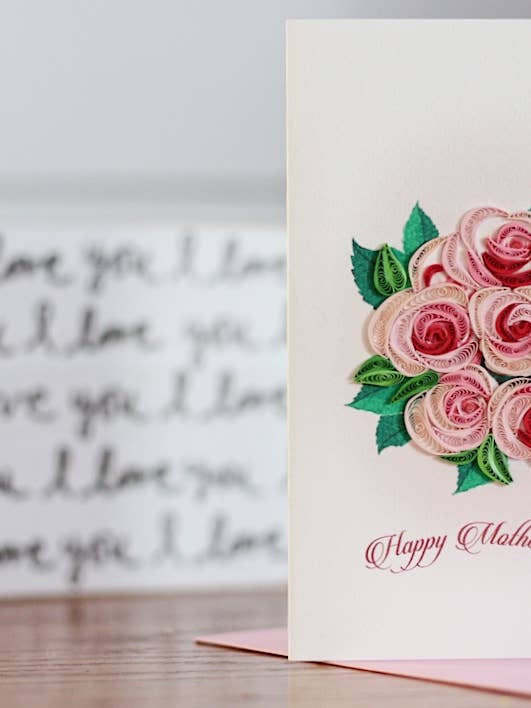 love you I love
I love you I
love you I love
I love you
love you I love
Happy Moth